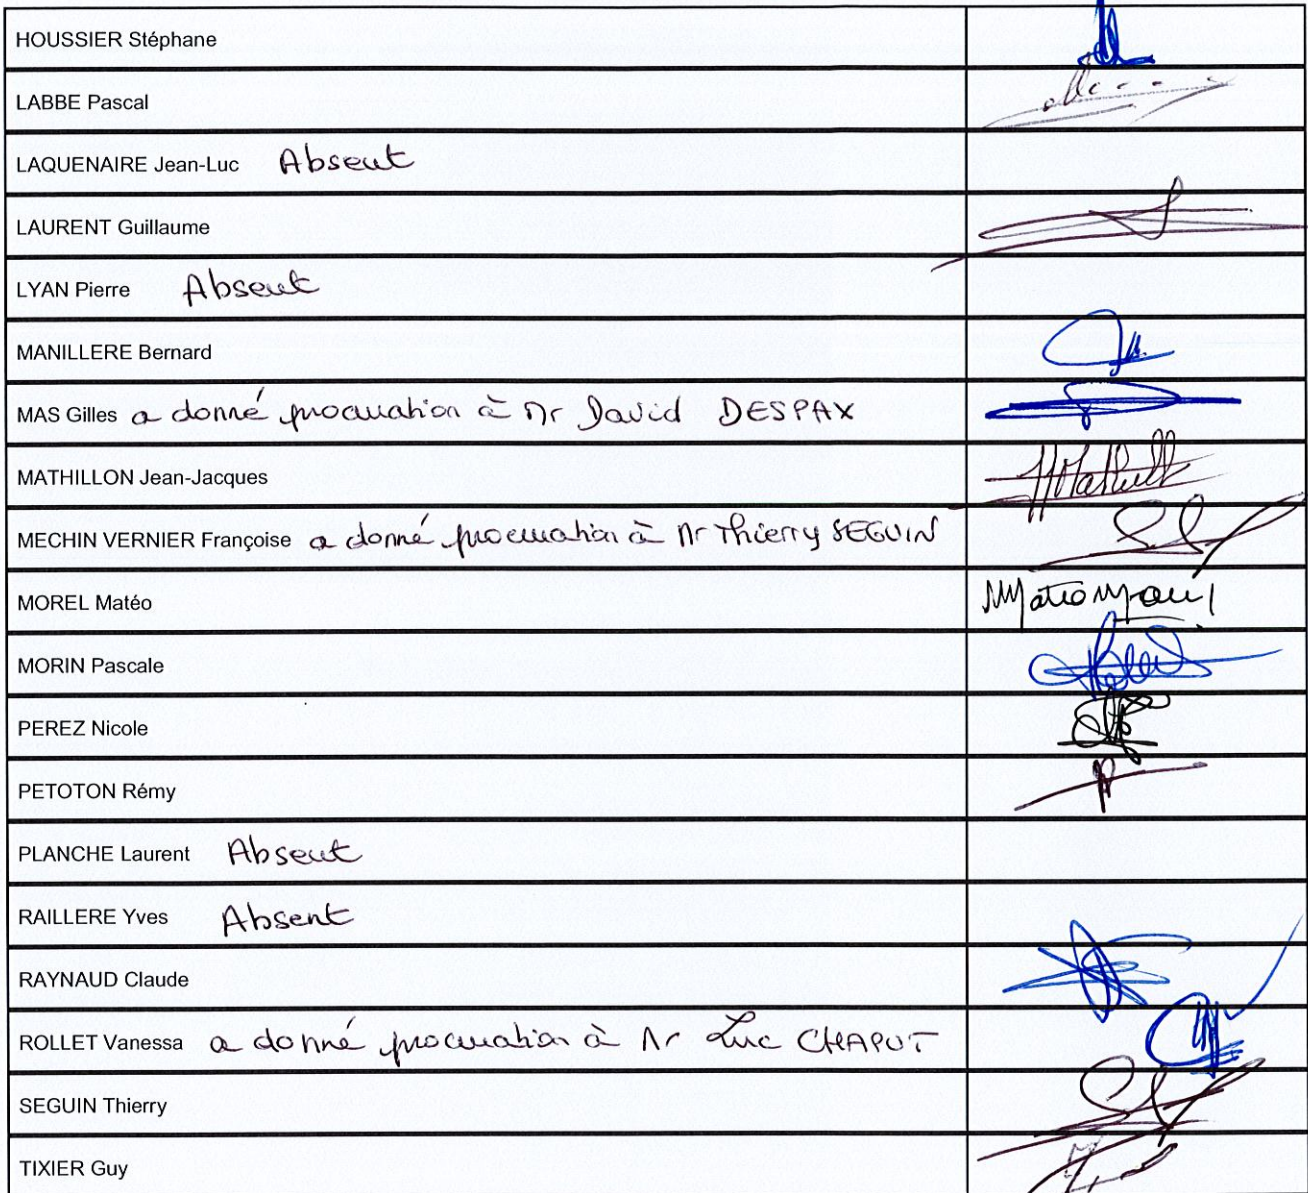 HOUSSIER Stéphane
LABBE Pascal
LAQUENAIRE Jean-Luc Absent
LAURENT Guillaume
LYAN Pierre Absent
MANILLERE Bernard
MAS Gilles a donné procuration à Mr David DESPAX
MATHILLON Jean-Jacques
MECHIN VERNIER Françoise a donné procuration à Mr Thierry SEGUIN
MOREL Matéo
MORIN Pascale
PEREZ Nicole
PETOTON Rémy
PLANCHE Laurent Absent
RAILLERE Yves Absent
RAYNAUD Claude
ROLLET Vanessa a donné procuration à Mr Luc CHAPUT
SEGUIN Thierry
TIXIER Guy